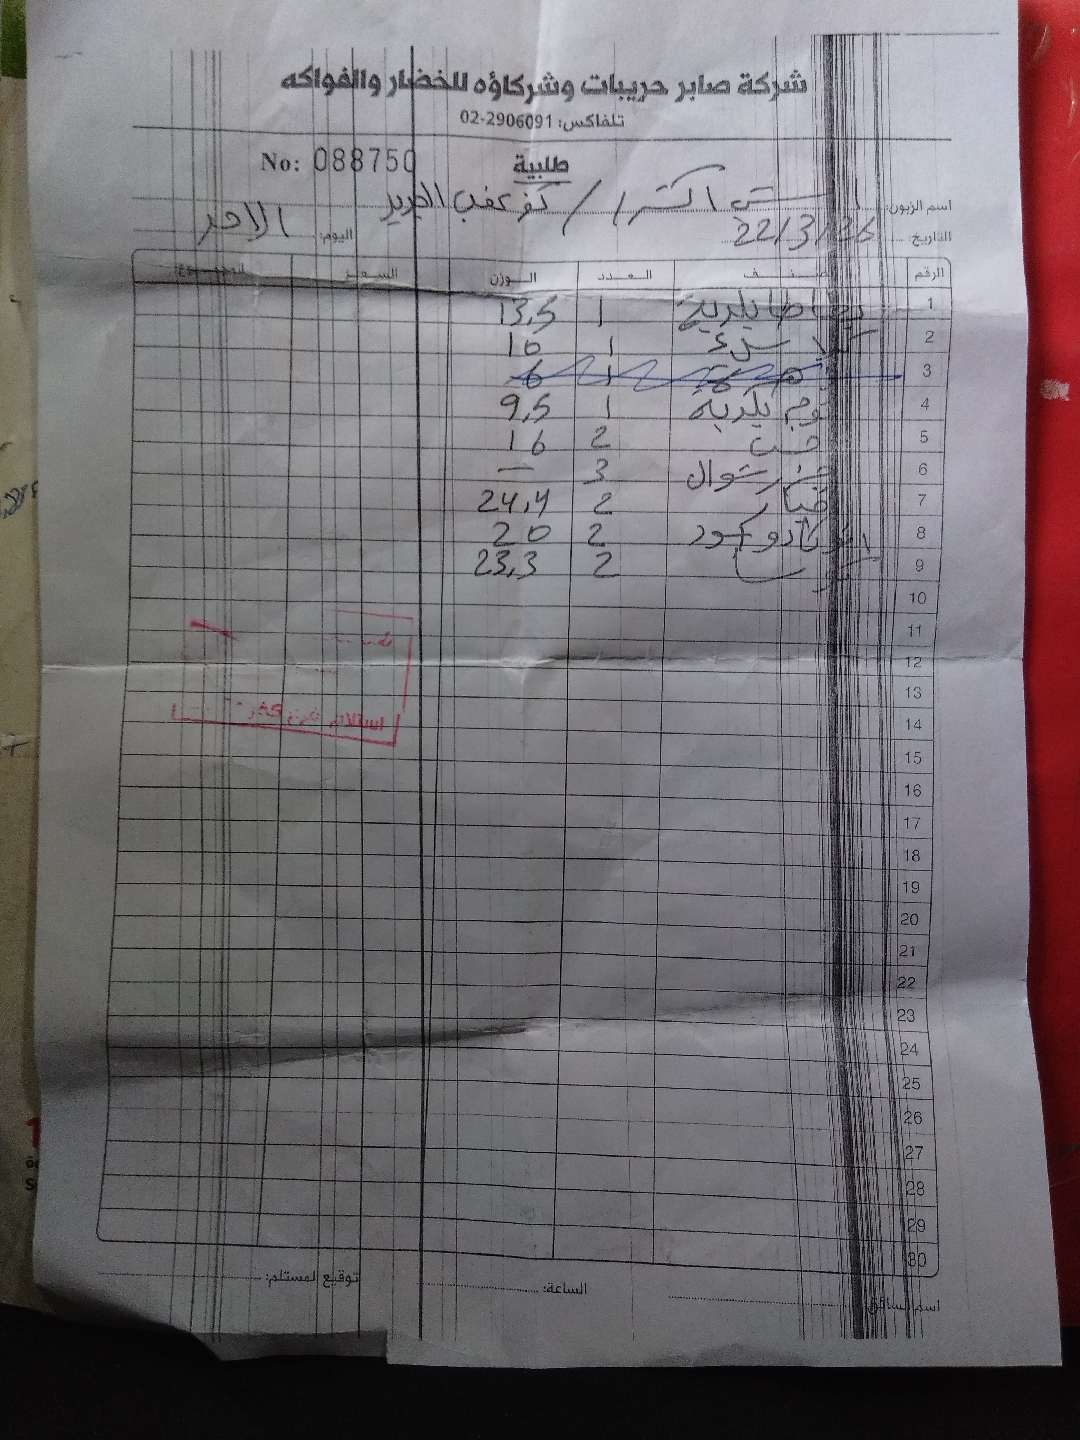 شركة صابر حريبات وشركاؤه للخضار والفواكه
تلفاكس: 02-2906091
طلبية No: 088750
اسم الزبون: اكسترا / كفر عقب الجديد
التاريخ 22/3/26 اليوم: الاحد
الرقم صنف العدد الوزن السعر المجموع
1 بطاطا بلدية 1 13,5
2 1 10
3 1 6
4 ثوم بلدية 1 9,5
5 2 16
6 3 —
7 خيار 2 24,4
8 افوكادو 2 20
9 2 23,3
10
11
12
13
14
15
16
17
18
19
20
21
22
23
24
25
26
27
28
29
30
استلام فرع كفر
اسم السائق الساعة: توقيع لمستلم: